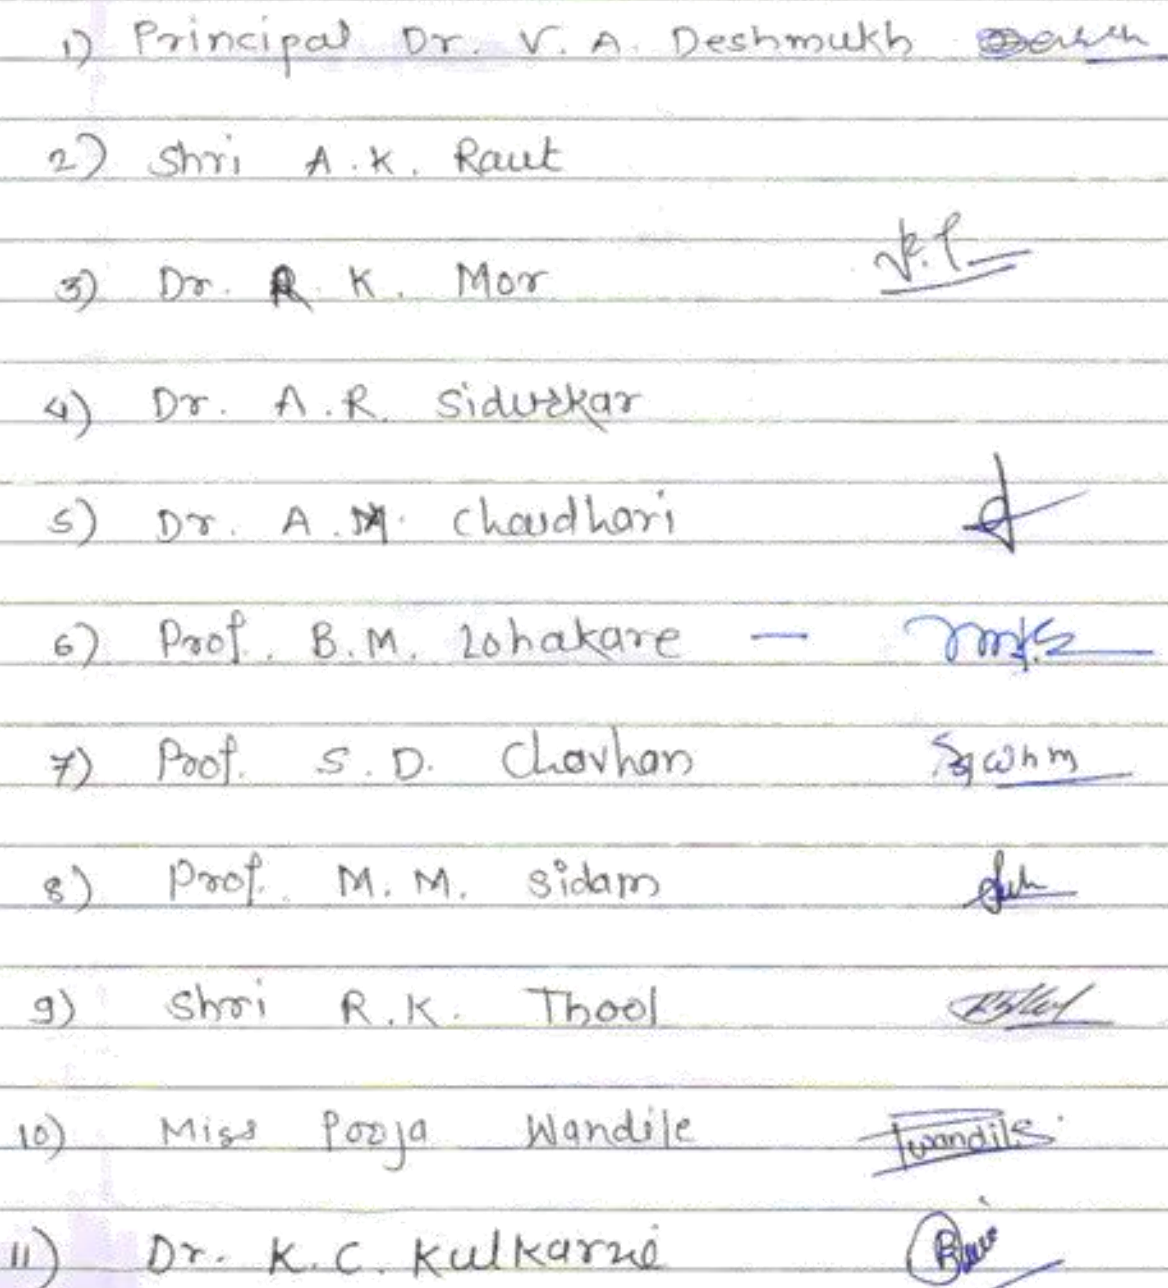 1) Principal Dr. V. A. Deshmukh
2) Shri A.K. Raut
3) Dr. R. K. Mor
4) Dr. A.R. Sidurkar
5) Dr. A.M. Chaudhari
6) Prof. B.M. Lohakare —
7) Prof. S.D. Chavhan
8) Prof. M.M. Sidam
9) Shri R.K. Thool
10) Miss Pooja Wandile Wandile
11) Dr. K.C. Kulkarni